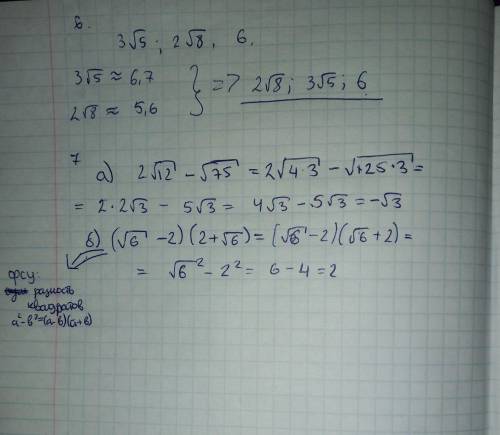 6.
3√5 ; 2√8, 6,
3√5 ≈ 6,7
2√8 ≈ 5,6
} => 2√8; 3√5; 6
7
а) 2√12 − √75 = 2√4·3 − √25·3 =
= 2·2√3 − 5√3 = 4√3 − 5√3 = −√3
б) (√6 − 2)(2+√6) = (√6 − 2)(√6 + 2) =
= √6² − 2² = 6 − 4 = 2
фсу:
разность
квадратов
a²−b²=(a−b)(a+b)